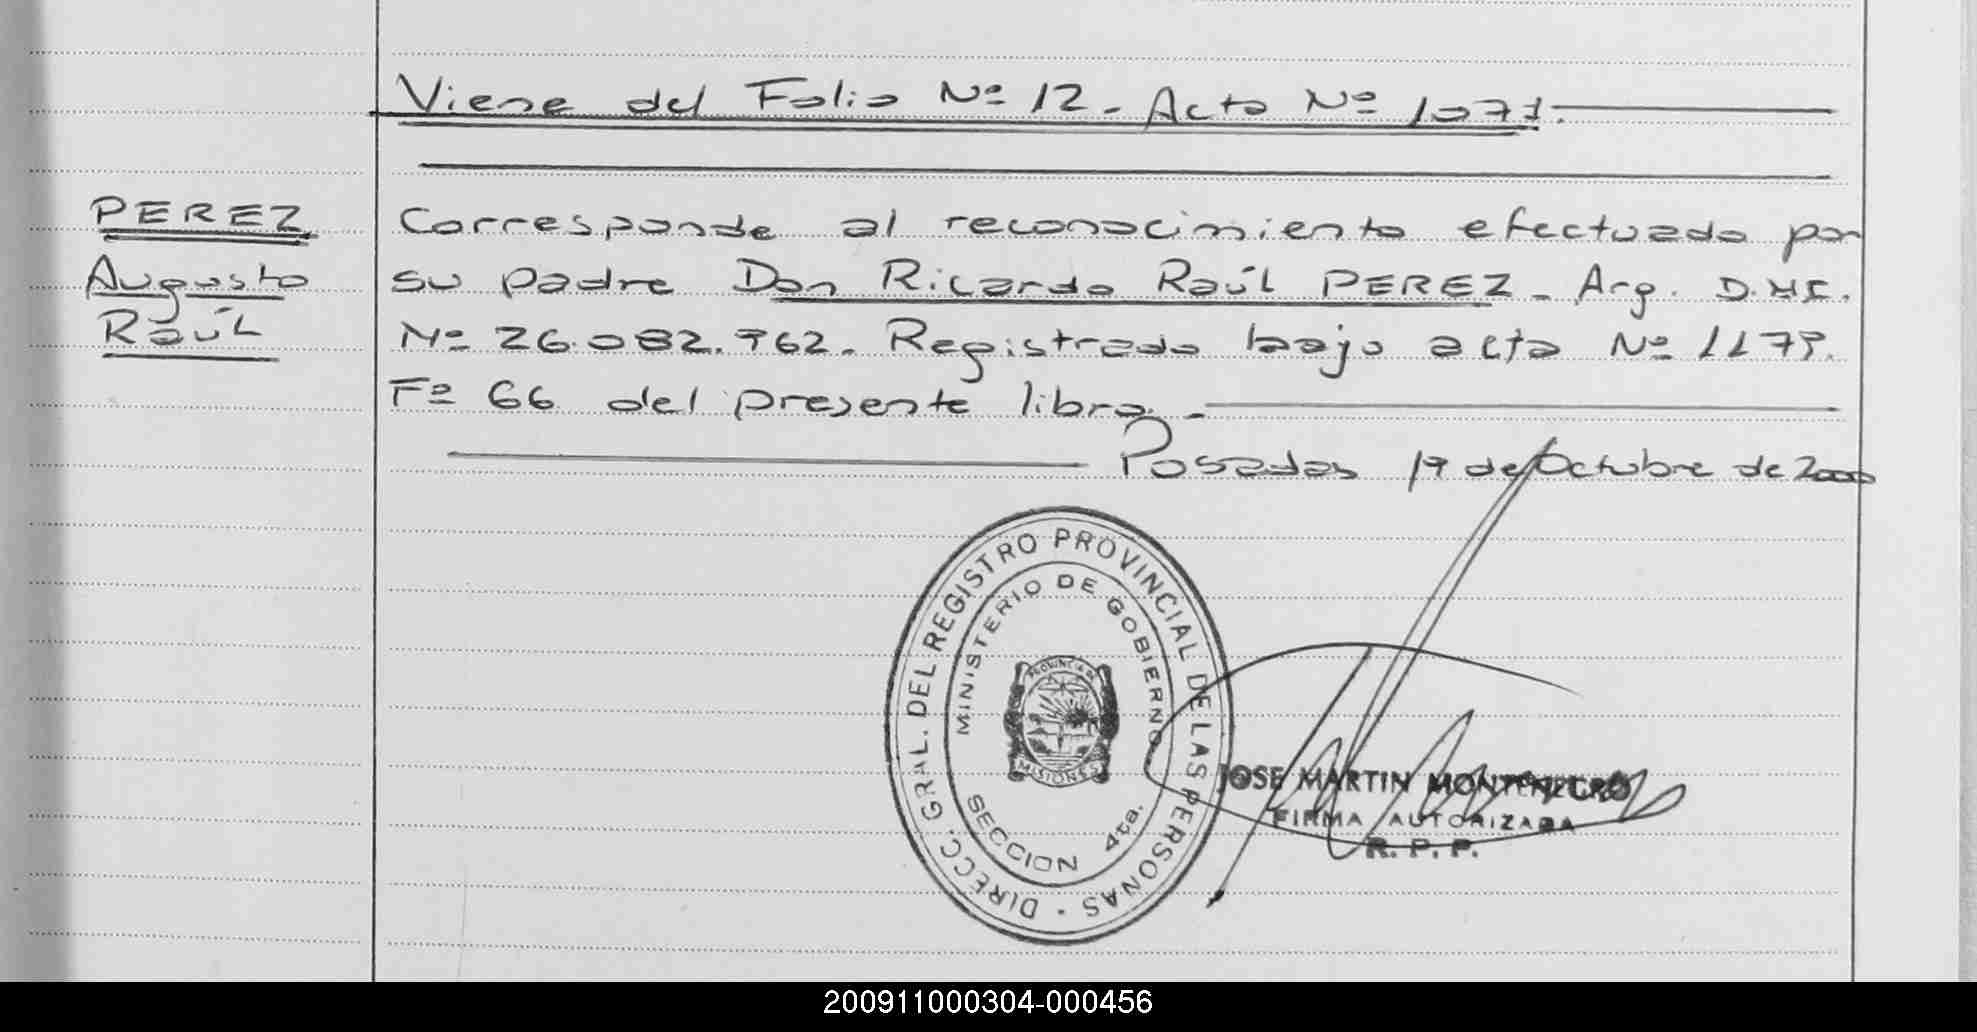 Viene del Folio Nº 12 - Acta Nº 1071.
PEREZ
Augusto
Raúl
Corresponde al reconocimiento efectuado por
su padre Don Ricardo Raúl PEREZ - Arg. D.N.I.
Nº 26.082.762. Registrado bajo acta Nº 1179.
Fº 66 del presente libro. -
Posadas 19 de Octubre de 2000
DIRECC. GRAL. DEL REGISTRO PROVINCIAL DE LAS PERSONAS -
MINISTERIO DE GOBIERNO
PROVINCIA DE
MISIONES
SECCION 4ta.
JOSE MARTIN MONTENEGRO
FIRMA AUTORIZADA
R. P. P.
200911000304-000456